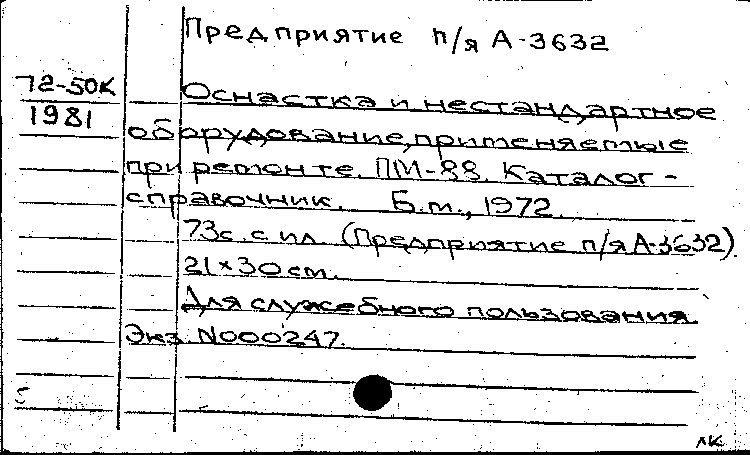 Предприятие п/я А-3632
72-50К
1981
Оснастка и нестандартное
оборудование, применяемые
при ремонте. ПМ-88. Каталог-
справочник. Б.м., 1972.
73с. с ил. (Предприятие п/я А-3632).
21×30 см.
Для служебного пользования.
Экз. N000247.
лк